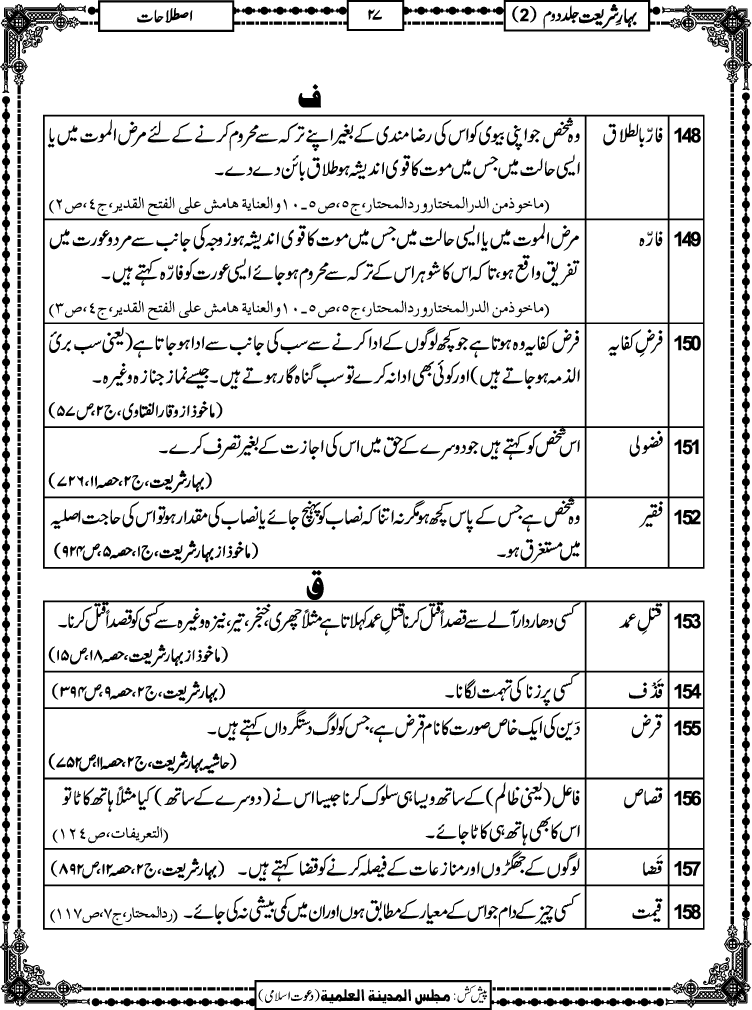 بہارِشریعت جلددوم (2) ۲۷ اصطلاحات
ف
148 فارّبالطلاق وہ شخص جواپنی بیوی کواس کی رضامندی کے بغیراپنے ترکہ سے محروم کرنے کے لئے مرض الموت میں یا
ایسی حالت میں جس میں موت کا قوی اندیشہ ہوطلاق بائن دے دے۔
(ماخوذمن الدرالمختاروردالمحتار،ج٥،ص٥۔١٠والعناية هامش على الفتح القدير،ج٤،ص٢)
149 فارّہ مرض الموت میں یا ایسی حالت میں جس میں موت کا قوی اندیشہ ہوزوجہ کی جانب سے مردوعورت میں
تفریق واقع ہو،تاکہ اس کا شوہراس کے ترکہ سے محروم ہوجائے ایسی عورت کوفارّہ کہتے ہیں۔
(ماخوذمن الدرالمختاروردالمحتار،ج٥،ص٥۔١٠والعناية هامش على الفتح القدير،ج٤،ص٣)
150 فرضِ کفایہ فرض کفایہ وہ ہوتا ہے جو کچھ لوگوں کے ادا کرنے سے سب کی جانب سے ادا ہوجاتا ہے(یعنی سب برئ
الذمہ ہوجاتے ہیں)اور کوئی بھی ادا نہ کرے توسب گناہ گار ہوتے ہیں۔جیسے نماز جنازہ وغیرہ۔
(ماخوذ از وقار الفتاوی، ج۲،ص۵۷)
151 فضولی اس شخص کو کہتے ہیں جو دوسرے کے حق میں اس کی اجازت کے بغیر تصرف کرے۔
(بہارشریعت،ج۲،حصہ۱۱،۷۲۶)
152 فقیر وہ شخص ہے جس کے پاس کچھ ہومگرنہ اتنا کہ نصاب کو پہنچ جائے یا نصاب کی مقدار ہوتواس کی حاجت اصلیہ
میں مستغرق ہو۔ (ماخوذ از بہارشریعت،ج۱،حصہ۵،ص۹۲۴)
ق
153 قتلِ عمد کسی دھاردار آلے سے قصداً قتل کرنا قتلِ عمد کہلاتا ہے مثلاً چھری،خنجر،تیر،نیزہ وغیرہ سے کسی کوقصداً قتل کرنا۔
(ماخوذ از بہارشریعت،حصہ۱۸،ص۱۵)
154 قَذْف کسی پر زنا کی تہمت لگانا۔ (بہارشریعت،ج۲،حصہ۹،ص۳۹۴)
155 قرض دَین کی ایک خاص صورت کا نام قرض ہے،جس کولوگ دستگرداں کہتے ہیں۔
(حاشیہ بہارشریعت،ج۲،حصہ۱۱،ص۷۵۲)
156 قصاص فاعل(یعنی ظالم)کے ساتھ ویسا ہی سلوک کرنا جیسا اس نے(دوسرے کے ساتھ)کیا مثلاً ہاتھ کاٹا تو
اس کا بھی ہاتھ ہی کاٹا جائے۔ (التعريفات،ص١٢٤)
157 قَضا لوگوں کے جھگڑوں اور منازعات کے فیصلہ کرنے کو قضا کہتے ہیں۔ (بہارشریعت،ج۲،حصہ۱۲،ص۸۹۲)
158 قیمت کسی چیز کے دام جواس کے معیار کے مطابق ہوں اور ان میں کمی بیشی نہ کی جائے۔ (ردالمحتار،ج٧،ص١١٧)
پیش کش: مجلس المدینة العلمیة(دعوت اسلامی)